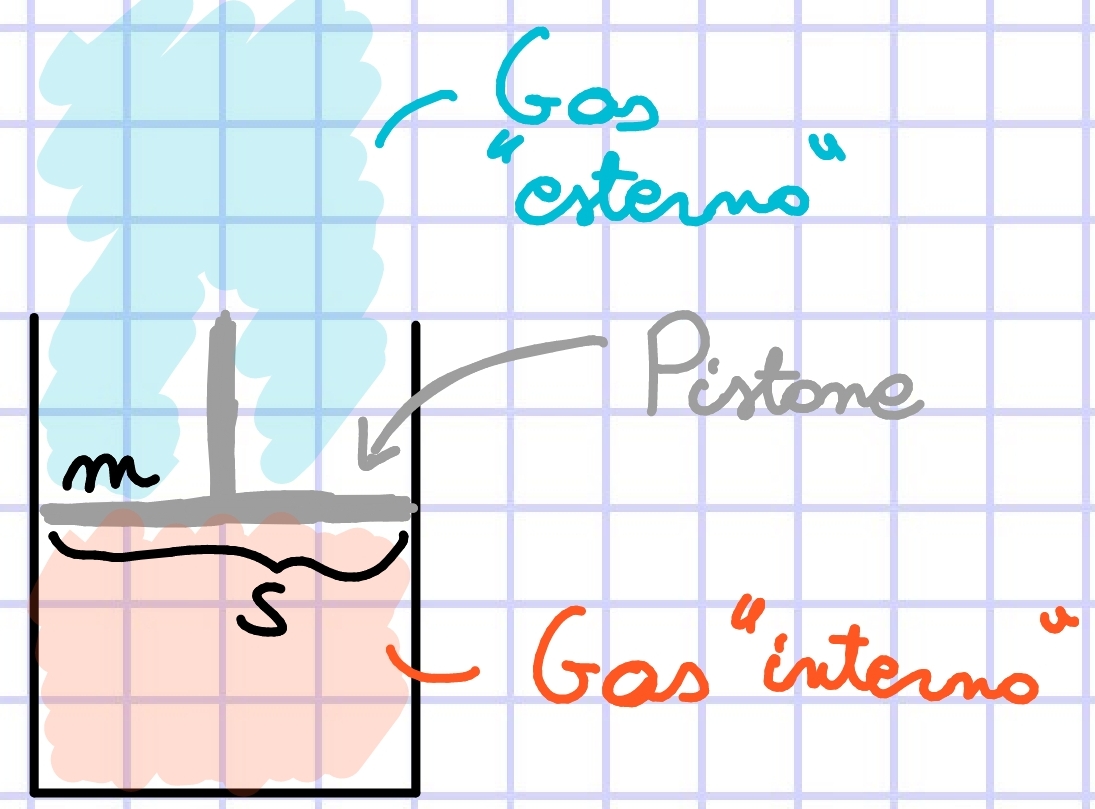 Gas
"esterno"
Pistone
m
S
Gas "interno"